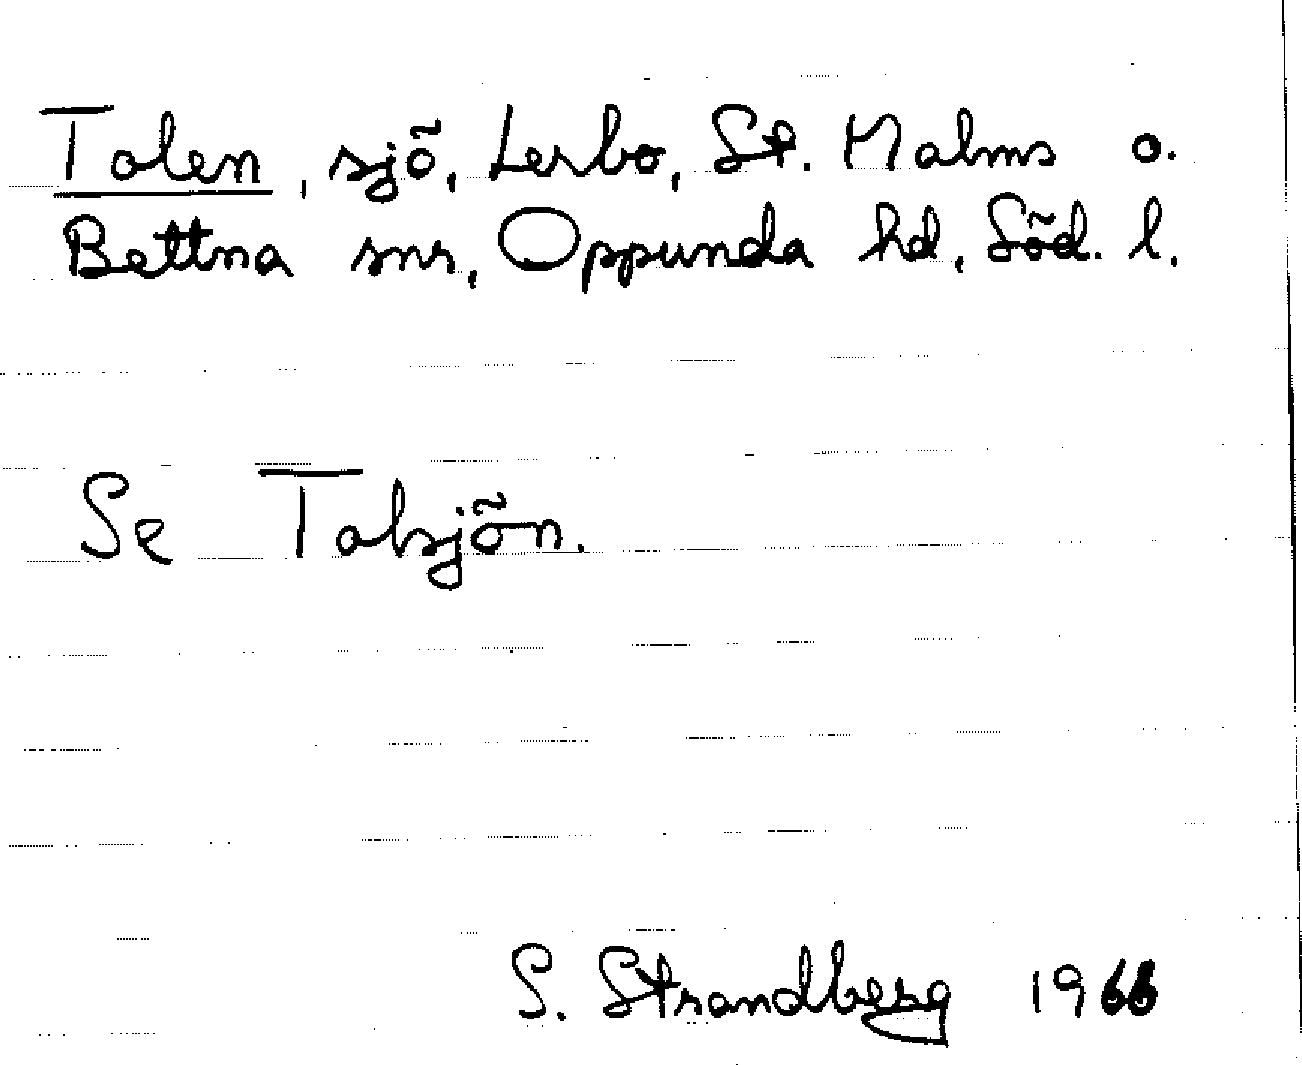 Talen, sjö, Lerbo, St. Malms o.
Bettna snr, Oppunda hd, Söd. l.
Se Talsjön.
S. Strandberg 1966